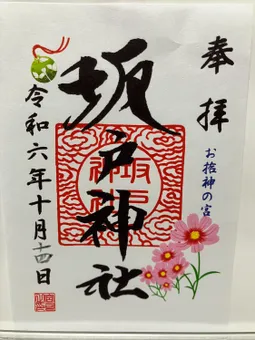 奉拝
お捨神の宮
坂戸神社
令和六年十月十四日